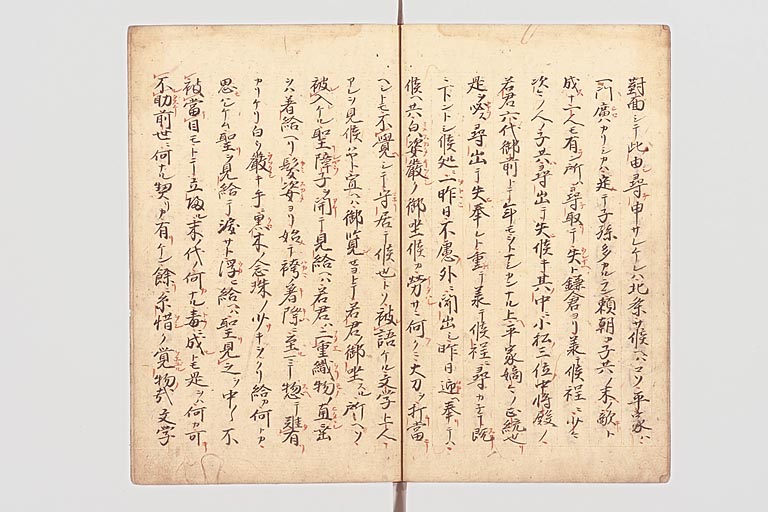 對面シテ此由尋申サレケレハ北条サ候ヘハコソ平家ハ
一門廣カリシカハ定テ子孫多カルラン頼朝カ子共ノ末敵ト
成ヘキ人モ有ン所ヲハ尋取テ失ヘト鎌倉ヨリ蒙テ候程ニ少々
次々ノ人ノ子共ヲハ尋出テ失候キ其中ニ小松三位中将殿ノ
若君六代御前トテ年モヲトナシカンナル上平家嫡々ノ正統也
是ヲ必ス尋出テ失奉レト重テ蒙テ候程ニ尋カネテ既
ニトントシ候処ニ一昨日不慮外ニ聞出シ昨日迎ヘ奉テハ
候ヘ共白ハ姿嚴ク御坐候カ勞サニ何クニ大刀ヲ打當
ヘシトモ不覺シテ守居テ候也トソ被語ケル文学上人
アレヲ見候ハヤト宣ヘハ御覧セヨトテ若君ノ御坐スル所ヘソ
被入ケル聖障子ヲ開テ見給ヘハ若君ハ二重織物ノ直垂
ヲソ着給ヘリ髪姿ヨリ始テ袴ノ着際ニ至マテニ惣テ難有
カリケリ白ク嚴キ手ニ黒木ノ念珠ノ少キヲクリ給カ何トカ
思ケム聖ヲ見給テ涙ヲ浮ヘ給ヘハ聖見之ヲ中々ノ不
被當目モトテ立帰ル末代何ナル毒成トモ是ヲハ何カ可
不助前世ニ何ナル契リカ有ケン餘ニ糸惜ク覚物哉文学